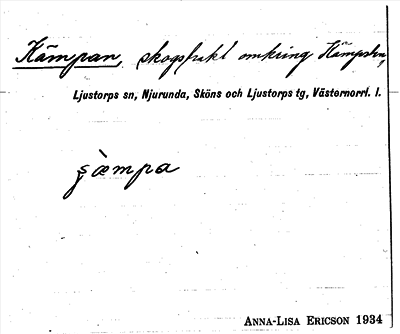 Kämpan, skogstrakt omkring Kämpsjön,
Ljustorps sn, Njurunda, Sköns och Ljustorps tg, Västernorrl. l.
ʂæ̀mpa
ANNA-LISA ERICSON 1934